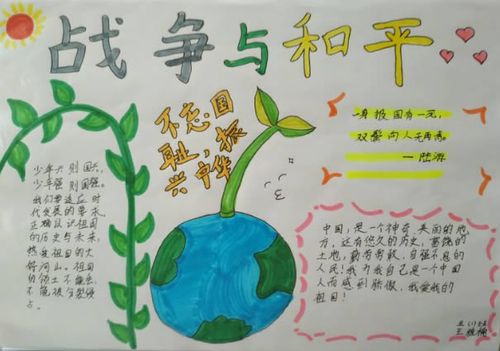 战争与和平
不忘国
耻，振
兴中华
一身报国有一死，
双鬓向人无再青。
—陆游
少年兴则国兴，
少年强则国强。
我们要适应时
代发展的要求，
正确认识祖国
的历史与未来，
热爱祖国的大
好河山。祖国
的领土不能丢，
不能被分裂侵
占。
中国，是一个神奇、美丽的地
方，还有悠久的历史、富饶的
土地，勤劳勇敢、自强不息的
人民！我为我自己是一个中国
人而感到骄傲，我爱我的
祖国！